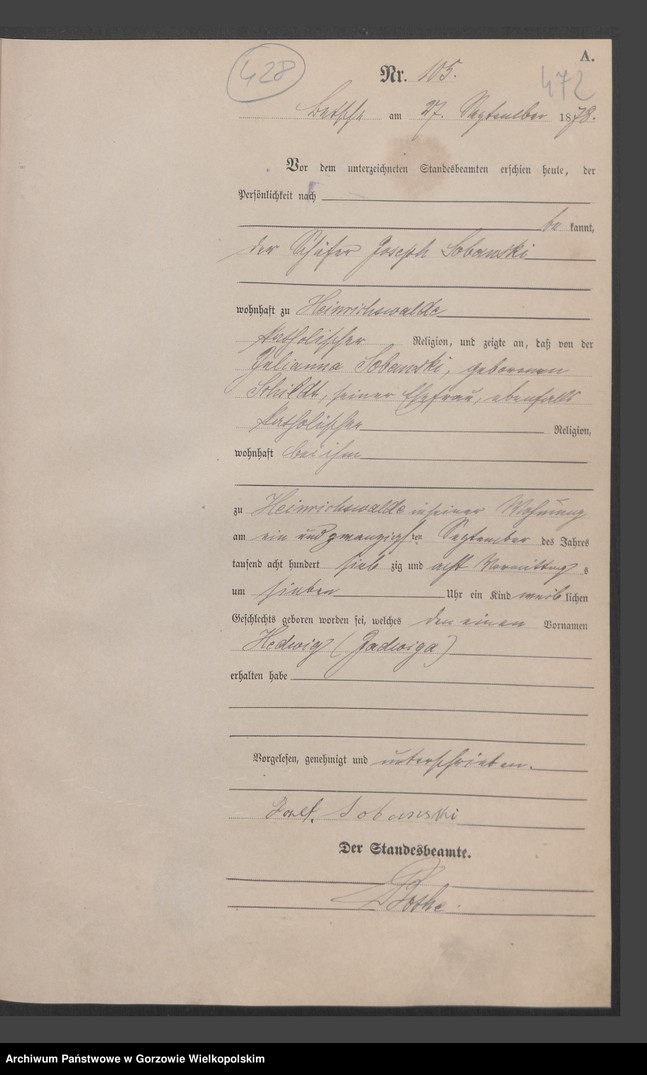 A.
428
Nr. 105.
472
Betsche am 27. September 1878.
Vor dem unterzeichneten Standesbeamten erschien heute, der
Persönlichkeit nach
be kannt,
der Schäfer Joseph Sobanski
wohnhaft zu Heinrichswalde
katholischer Religion, und zeigte an, daß von der
Julianna Sobanski, geborenen
Schildt, seiner Ehefrau, ebenfalls
katholischer Religion,
wohnhaft bei ihm
zu Heinrichswalde in seiner Wohnung
am ein und zwanzigsten September des Jahres
tausend acht hundert sieb zig und acht Vormittag s
um sieben Uhr ein Kind weib lichen
Geschlechts geboren worden sei, welches den einen Vornamen
Hedwig (Jadwiga)
erhalten habe
Vorgelesen, genehmigt und unterschrieben.
Sobanski
Der Standesbeamte.
Archiwum Państwowe w Gorzowie Wielkopolskim